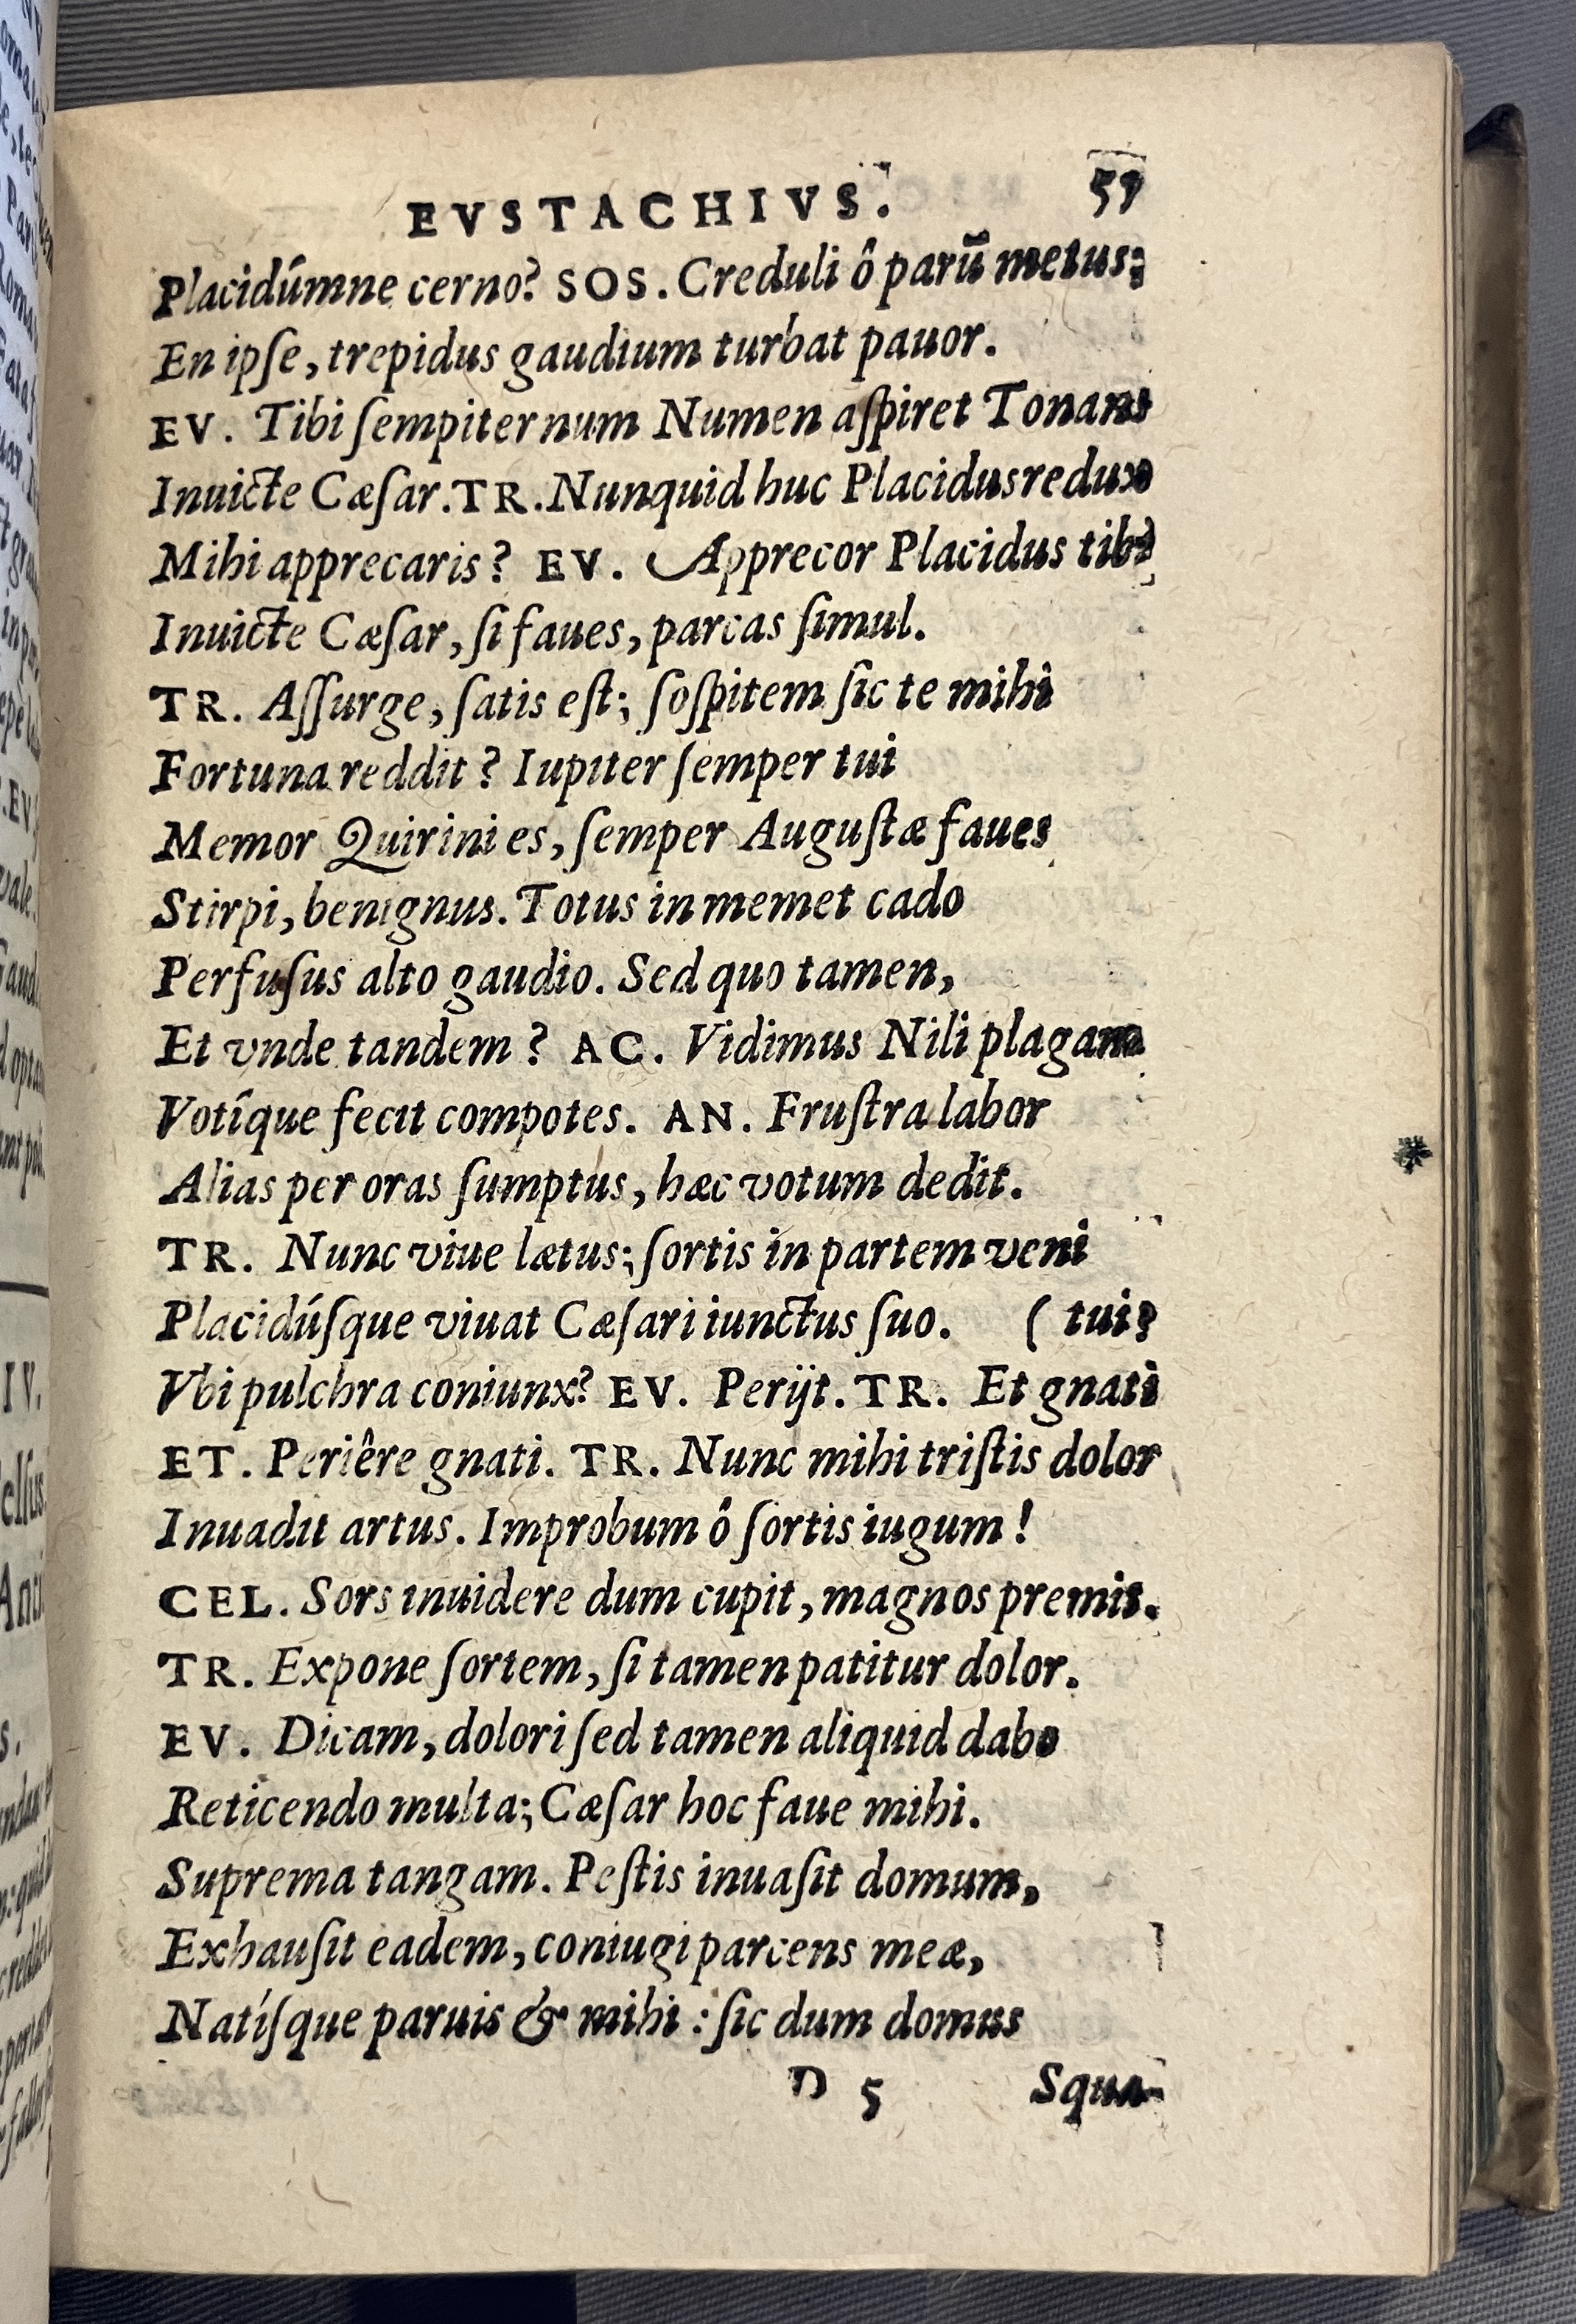 EVSTACHIVS. 57
Placidúmne cerno? SOS. Creduli ô parū metus;
En ipſe, trepidus gaudium turbat pauor.
EV. Tibi ſempiternum Numen aſpiret Tonans
Inuicte Cæſar. TR. Nunquid huc Placidus redux
Mihi apprecaris? EV. Apprecor Placidus tibi
Inuicte Cæſar, ſi faues, parcas ſimul.
TR. Aſſurge, ſatis eſt; ſoſpitem ſic te mihi
Fortuna reddit? Iupiter ſemper tui
Memor Quirini es, ſemper Auguſtæ faues
Stirpi, benignus. Totus in memet cado
Perfuſus alto gaudio. Sed quo tamen,
Et vnde tandem? AC. Vidimus Nili plagam
Votîque fecit compotes. AN. Fruſtra labor
Alias per oras ſumptus, hæc votum dedit.
TR. Nunc viue lætus; ſortis in partem veni
Placidúſque viuat Cæſari iunctus ſuo. ( tui?
Vbi pulchra coniunx? EV. Perijt. TR. Et gnati
ET. Periêre gnati. TR. Nunc mihi triſtis dolor
Inuadit artus. Improbum ô ſortis iugum!
CEL. Sors inuidere dum cupit, magnos premit.
TR. Expone ſortem, ſi tamen patitur dolor.
EV. Dicam, dolori ſed tamen aliquid dabo
Reticendo multa; Cæſar hoc faue mihi.
Suprema tangam. Peſtis inuaſit domum,
Exhauſit eadem, coniugi parcens meæ,
Natíſque paruis & mihi: ſic dum domus
D 5 Squa-